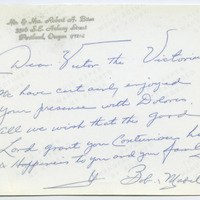 Mr. & Mrs. Robert H.
S.E. Street
Portland, Oregon
Dear Victor the Victorious
We have certainly enjoyed
Your presence with Dolores.
All we wish that the good
Lord grant you Continuous
Happiness to you and you family
By
Bob - Mabel